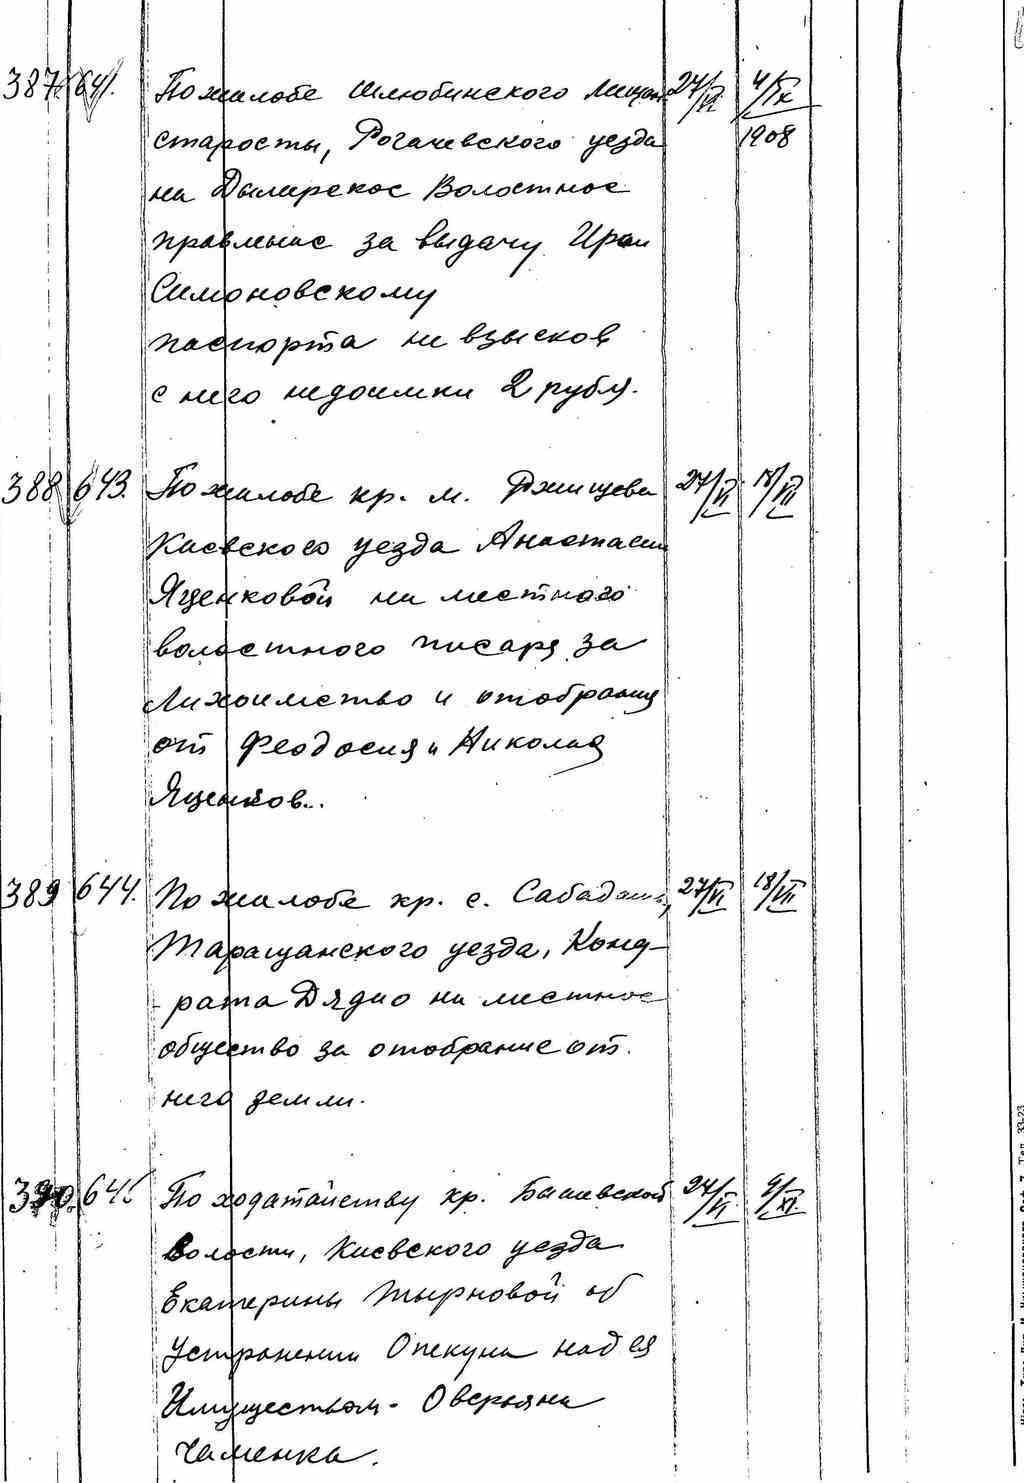 387 641. По жалобе Шлюбинского Мещан. 27/VI 4/IX
старосты, Рогачевского уезда 1908
на Дымерское Волостное
правление за выдачу
Симоновскому
паспорта не взысков
с него недоимки 2 рубля.
388 643. По жалобе кр. м. Ржищева 27/VI 18/VII
Киевского уезда Анастасии
Яценковой на местного
волостного писаря за
Лихоимство и отобрания
от Феодосия и Николая
Яценков..
389 644. По жалобе кр. с. Сабадаша, 27/VI 18/VII
Таращанского уезда, Конд-
рата Дядио на местное
общество за отобрание от
него земли.
390. По ходатайству кр. Бышевской 24/VI 9/XI
Волости, Киевского уезда
Екатерины Тырновой об
Устранении Опекуна над ея
Имуществом - Оверьяна
Чаменка.